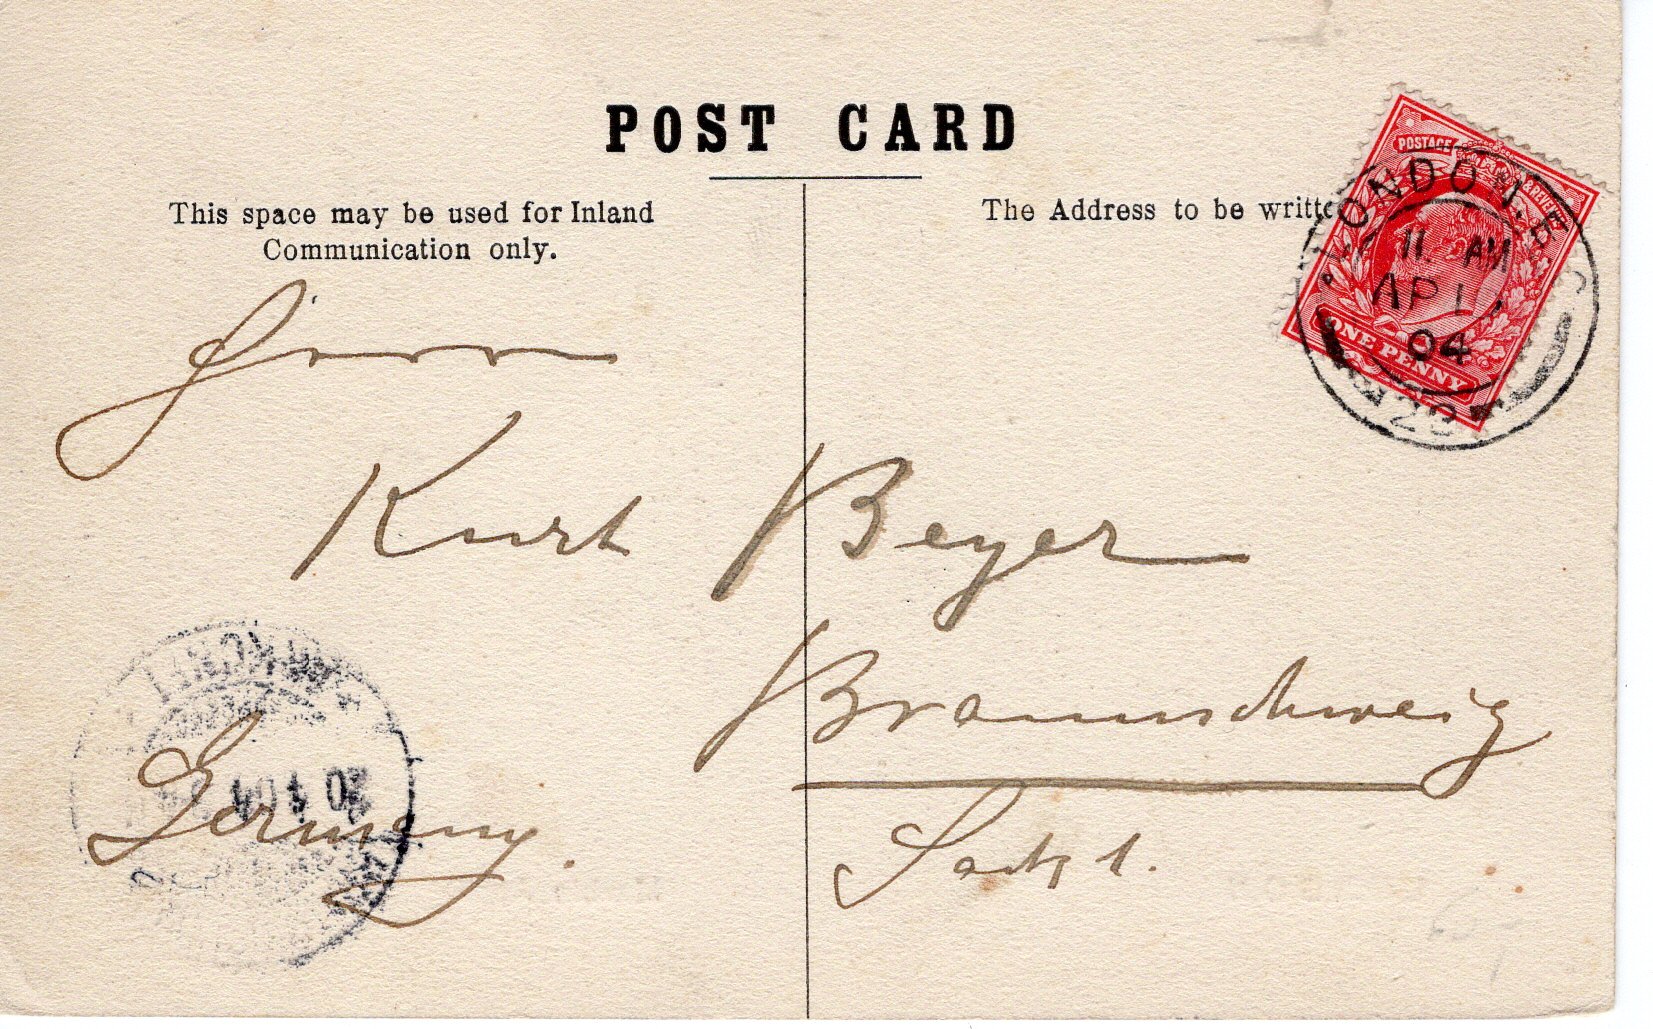 POST CARD
This space may be used for Inland
Communication only.
The Address to be writte
POSTAGE & REVENUE
ONE PENNY
LONDON. E.C
11. AM
AP 1
04
Herrn
Kurt Beyer
Braunschweig
Germany.
20 4 04